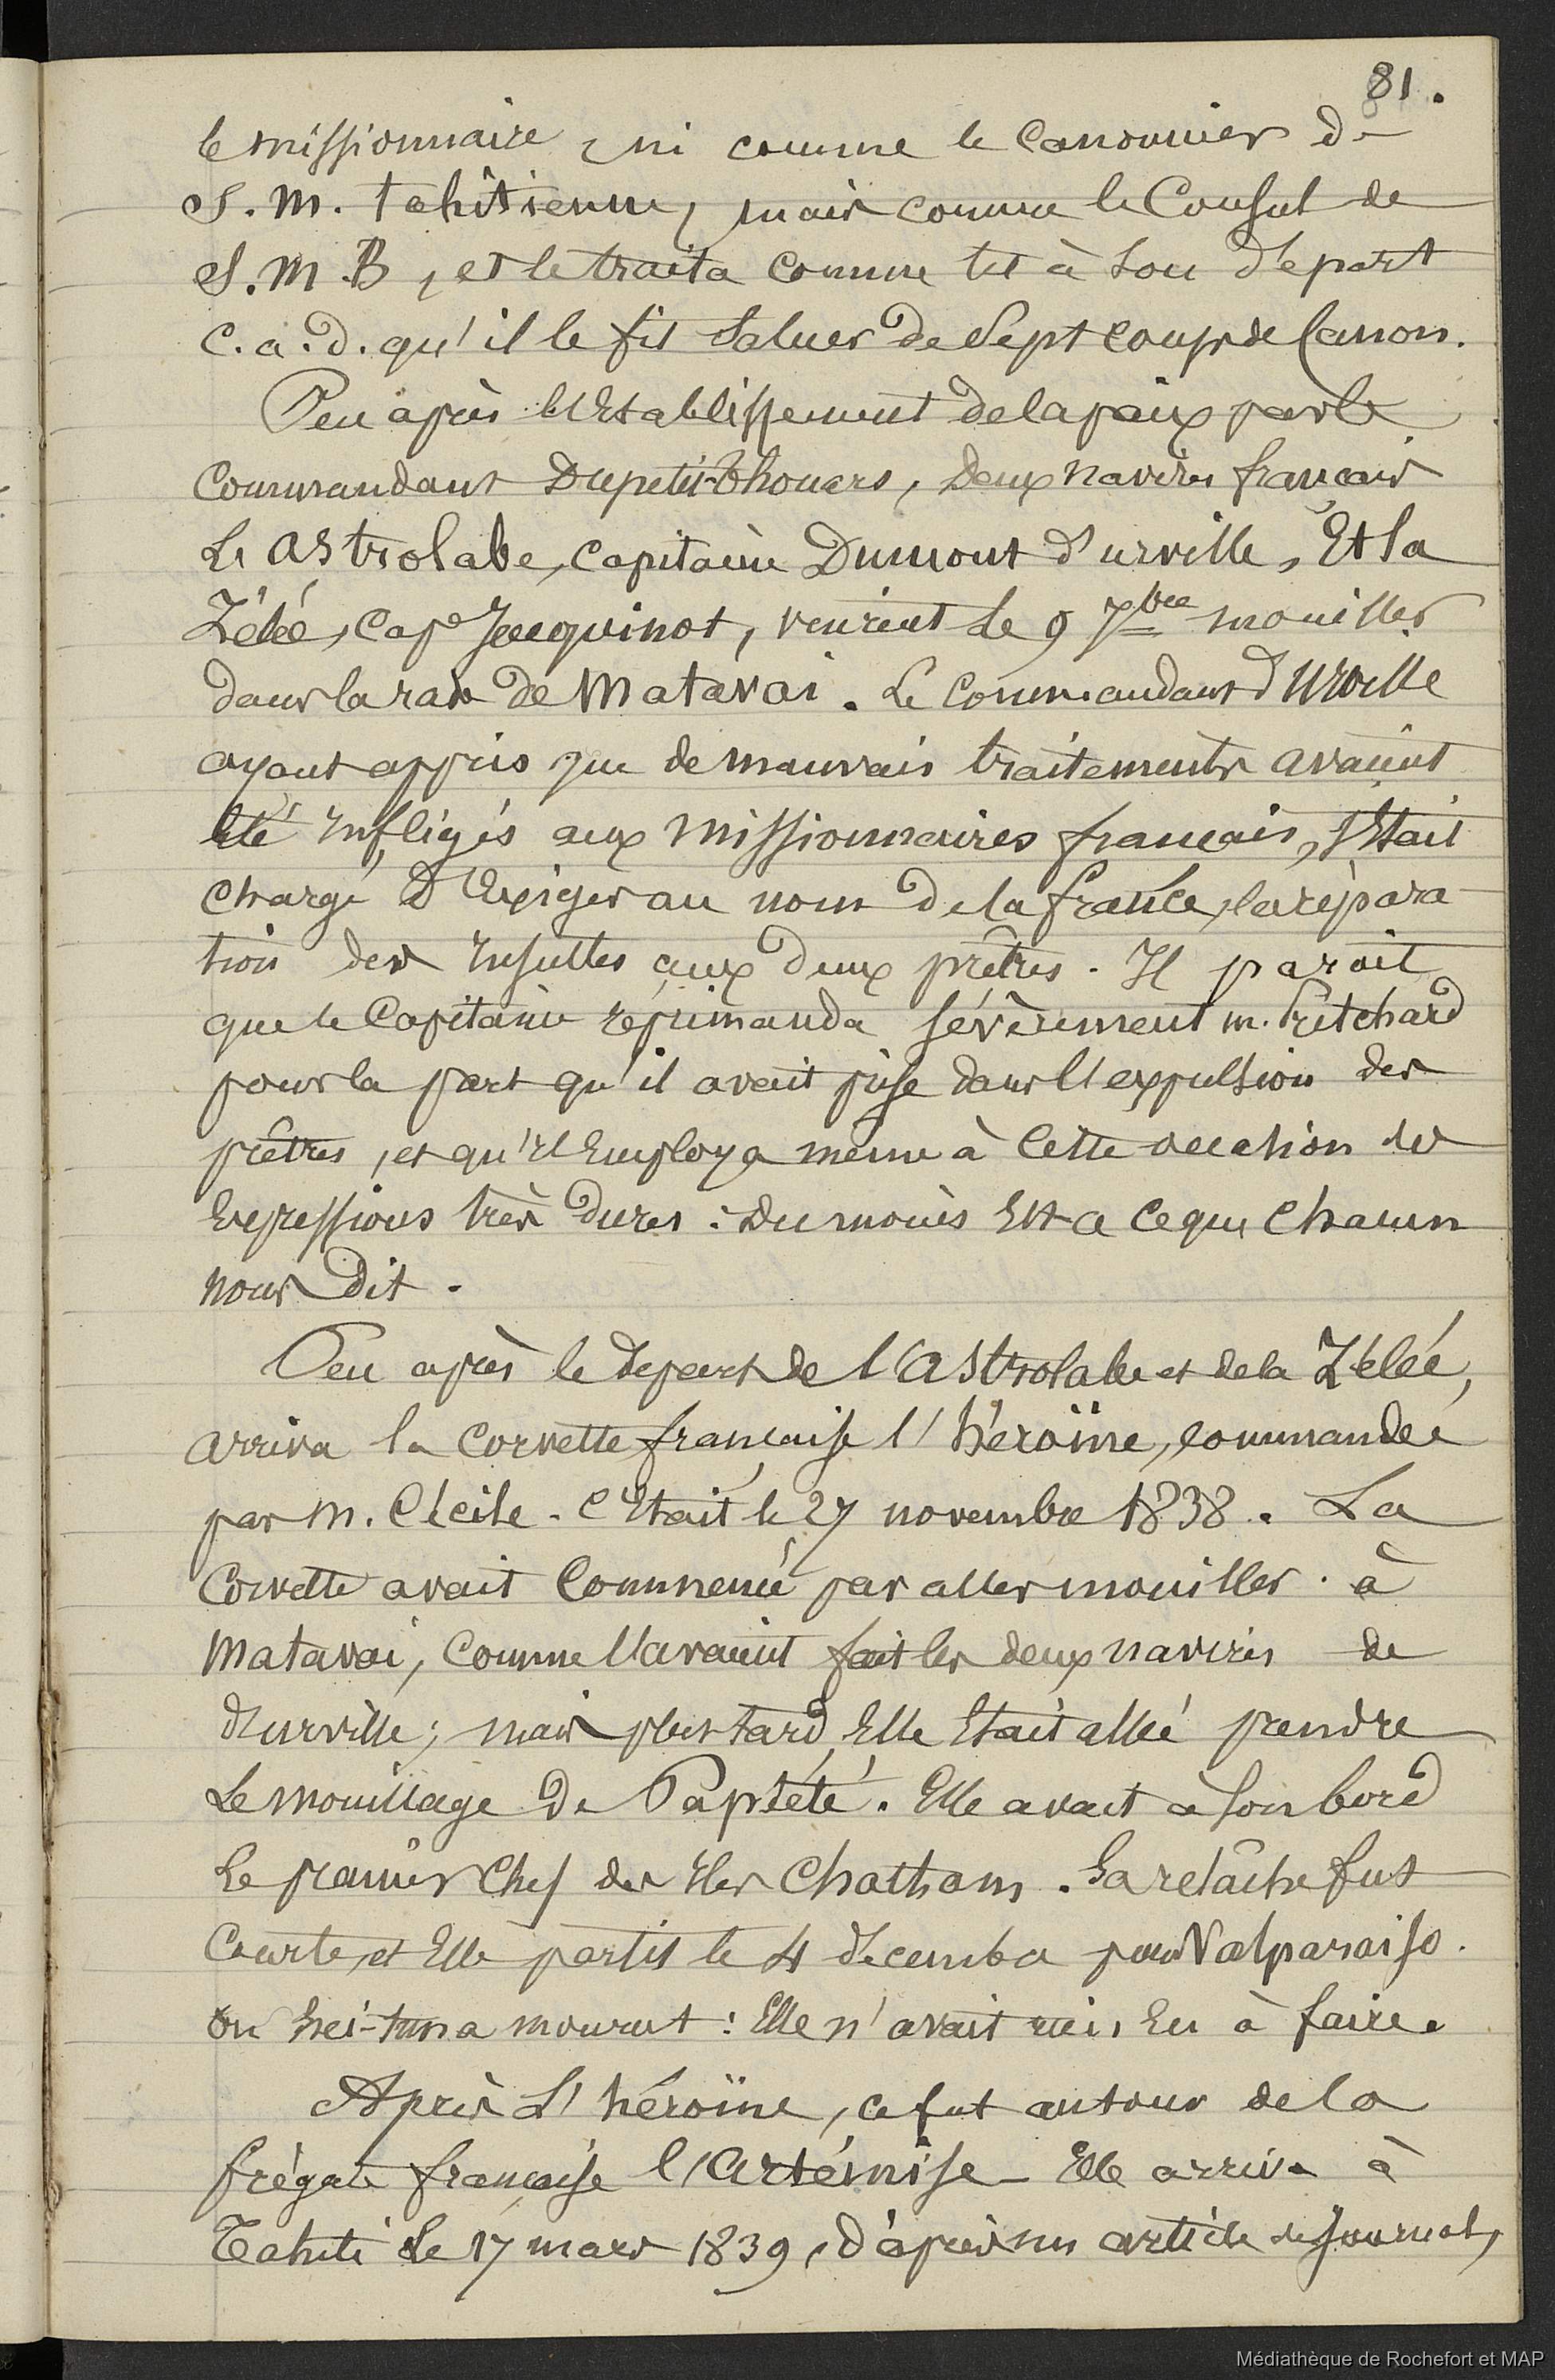 81.
le missionnaire, ni comme le canonnier de
S. M. tahitienne, mais comme le Consul de
S. M. B, et le traita comme tel à son départ
c. a. d. qu'il le fit saluer de sept coups de canon.
Peu après l'Etablissement de la paix par le
commandant Dupetit-Thouars, deux navires français
L'astrolabe, capitaine Dumont d'urville, Et la
Zélée, cape Jacquinot, vinrent le 9 7bre mouiller
dans la rade de Matavai. Le commandant d'Urville
ayant appris que de mauvais traitements avaient
été infligés aux missionnaires français, s'était
chargé d'Exiger au nom de la france, la répara-
tion des insultes aux deux prêtres. Il paroit
que le Capitaine réprimanda sévèrement m. Pritchard
pour la part qu'il avait prise dans l'expulsion des
prêtres, et qu'il Employa même à cette occasion des
Expressions très dures : du moins Est-ce ce que chacun
nous dit.
Peu après le départ de l'Astrolabe et de la Zélée,
arriva la corvette française l'héroïne, commandée
par m. Cécile. C'Etait le 27 novembre 1838. La
Corvette avait commencé par aller mouiller à
Matavai, comme l'avaient fait les deux navires de
d'urville ; mais plus tard Elle Etait allée prendre
Le mouillage de Papeété. Elle avait à son bord
Le premier Chef des Iles Chattam. Sa relâche fut
Courte, et Elle partit le 4 décembre pour Valparaiso.
ou hei-tuna mourut : Elle n'avait rien Eu à faire.
Après L'héroïne, ce fut autour de la
frégate française l'Artémise - Elle arriva à
Tahiti le 17 mars 1839, d'après un article de journal,
Médiathèque de Rochefort et MAP